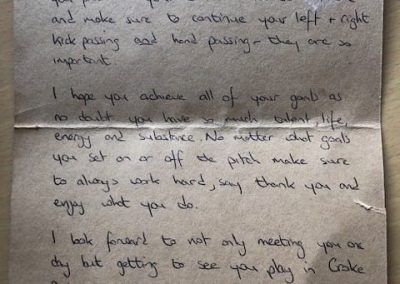 and make sure to continue your left + right
kick passing and hand passing - they are so
important
I hope you achieve all of your goals as
no doubt you have so much talent, life,
energy and substance. No matter what goals
you set on or off the pitch make sure
to always work hard, say thank you and
enjoy what you do.
I look forward to not only meeting you one
day but getting to see you play in Croke